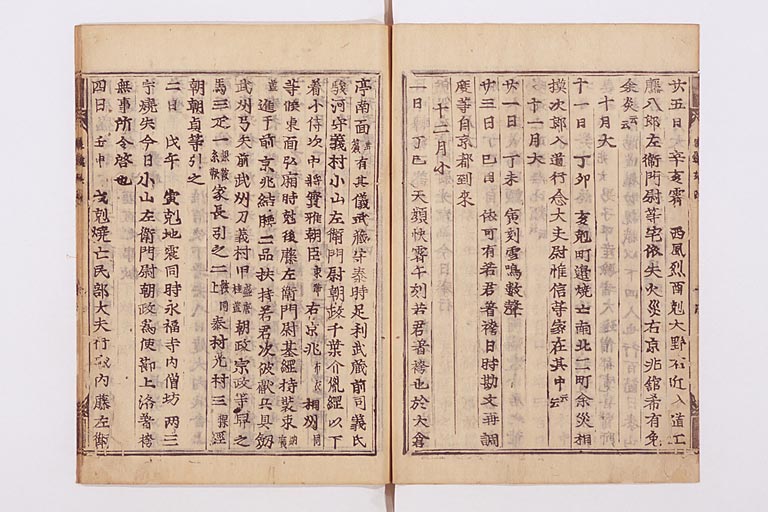 廿五日 辛亥霽 西風烈酉剋大野右近入道工
藤八郎左衛門尉等宅依失火災右京兆舘希有免
余炎云云
十月大
十一日 丁卯 亥剋町邊燒亡南北二町余災相
摸次郎入道行念大夫尉惟信等家在其中云云
十一月大
廿一日 丁未 寅刻雷鳴數聲
廿三日 丁巳 依可有若君著袴日時勘文再調
度等自京都到來
十二月小
一日 丁巳 天顏快霽午刻若君著袴也於大倉
亭南面 有其儀武藏守泰時足利武藏前司義氏
駿河守義村小山左衛門尉朝政千葉介胤經以下
着小侍次中將實雅朝臣束帶右京兆布衣相州同
等候東面弘廂時剋後藤左衛門尉基經持裝束
進于前京兆結腰二品扶持若君次被獻兵具劔
武州弓矢前武州刀義村甲 朝政宗政等舁之
馬三疋一 家長引之二 上泰村光村三 胤經
朝朝貞等引之
二日 戊午 寅剋地震同時永福寺內僧坊兩三
宇燒失今日小山左衛門尉朝政爲使節上洛著袴
無事所令啓也
四日 壬申 戌剋燒亡民部大夫行 內藤左衛